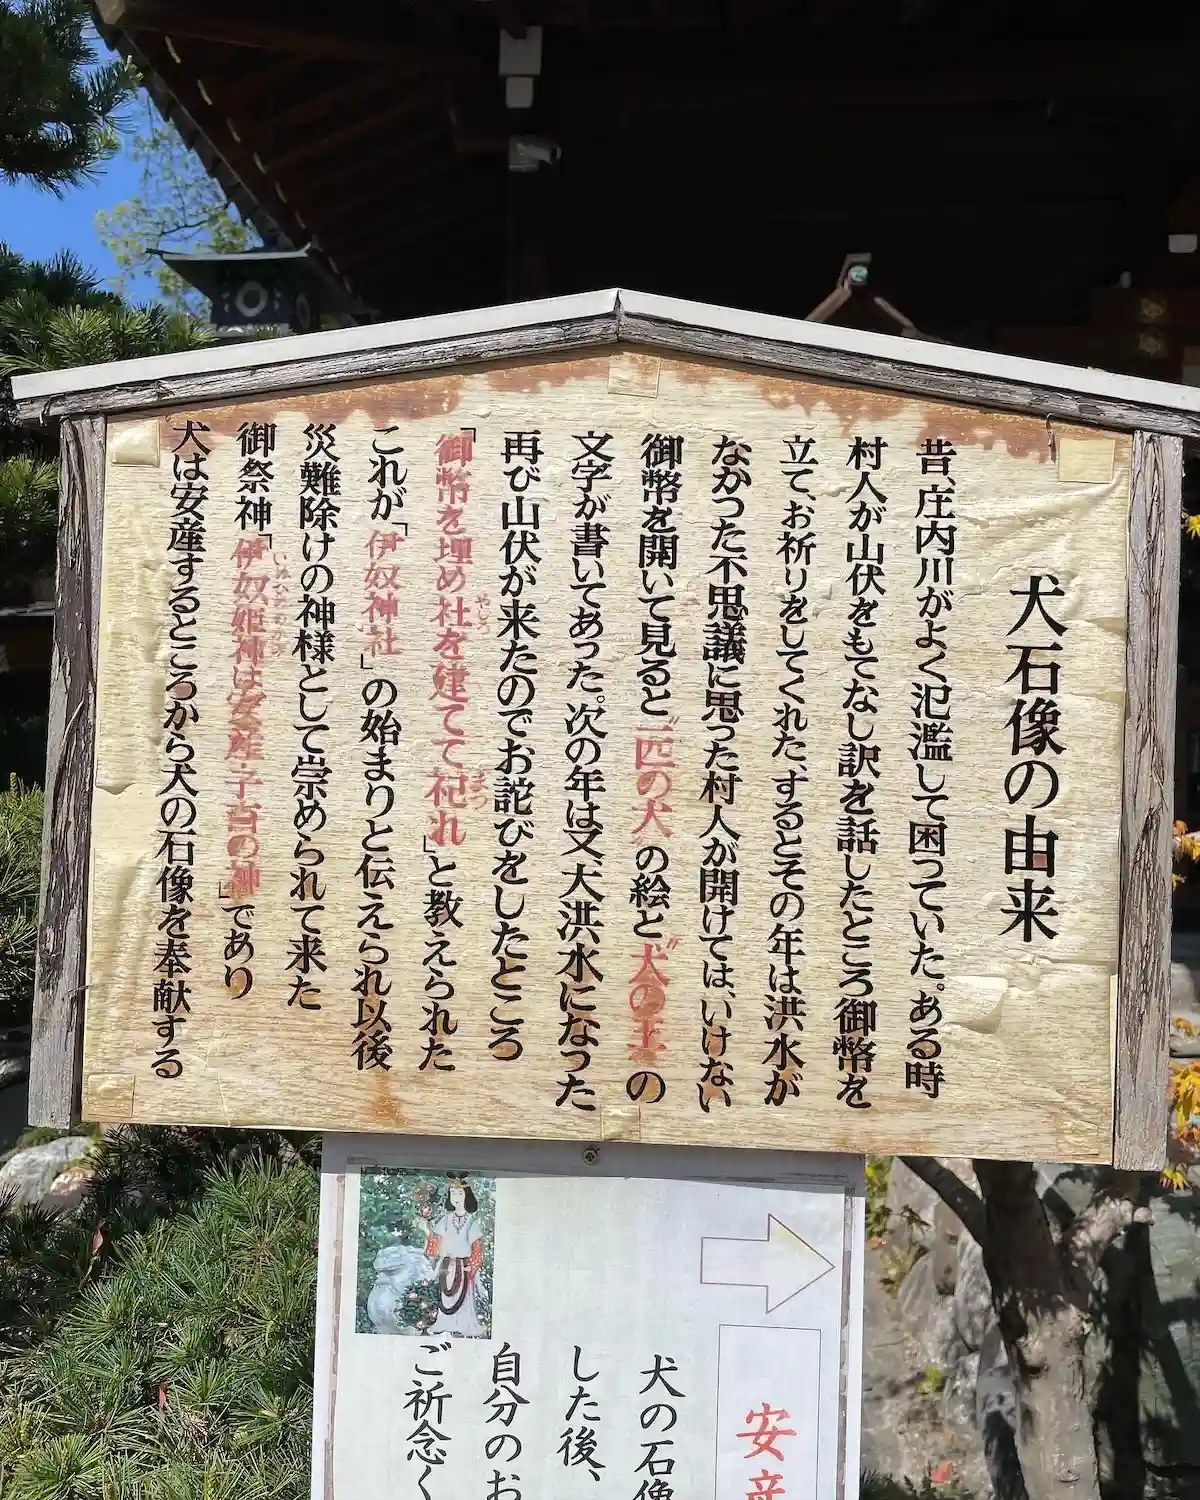 犬石像の由来
昔、庄内川がよく氾濫して困っていた。ある時
村人が山伏をもてなし訳を話したところ御幣を
立て、お祈りをしてくれた、するとその年は洪水が
なかった不思議に思った村人が開けては、いけない
御幣を開いて見ると〝一匹の犬〟の絵と〝犬の王〟の
文字が書いてあった。次の年は又大洪水になった
再び山伏が来たのでお詑びをしたところ
「御幣を埋め社を建てて祀れ」と教えられた
やしろ
まつ
これが「伊奴神社」の始まりと伝えられ以後
災難除けの神様として崇められて来た
御祭神「伊奴姫神は安産子育の神」であり
いぬひめのかみ
犬は安産するところから犬の石像を奉献する
安産
犬の石像
した後、
自分のお
ご祈念く